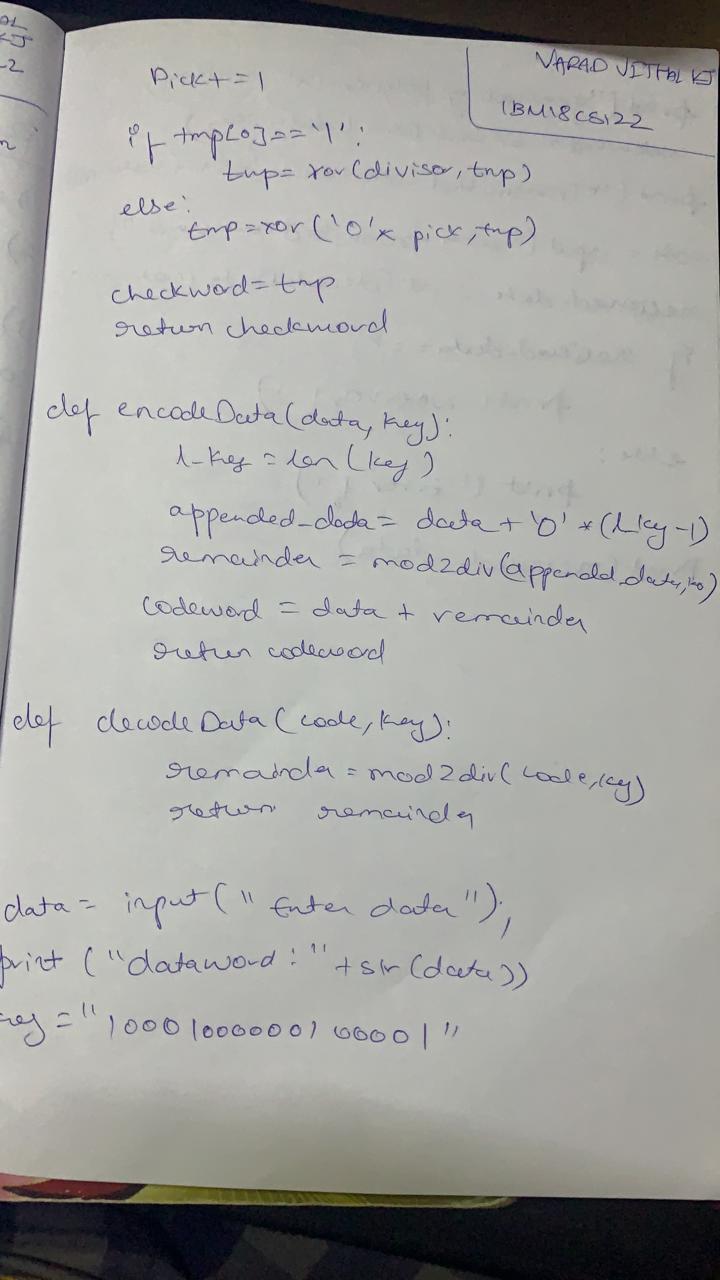 VARAD VITHAL KJ
1BM18CS122
Pick+=1
if tmp[0]=='1':
tmp=xor(divisor,tmp)
else:
tmp=xor('0'* pick,tmp)
checkword=tmp
return checkword
def encodeData(data,key):
l_key=len(key)
appended_data=data+'0'*(l_key-1)
remainder=mod2div(appended_data,key)
codeword=data+remainder
return codeword
def decodeData(code,key):
remainder=mod2div(code,key)
return remainder
data=input("Enter data");
print("dataword:"+str(data))
key="10001000000100001"
-2